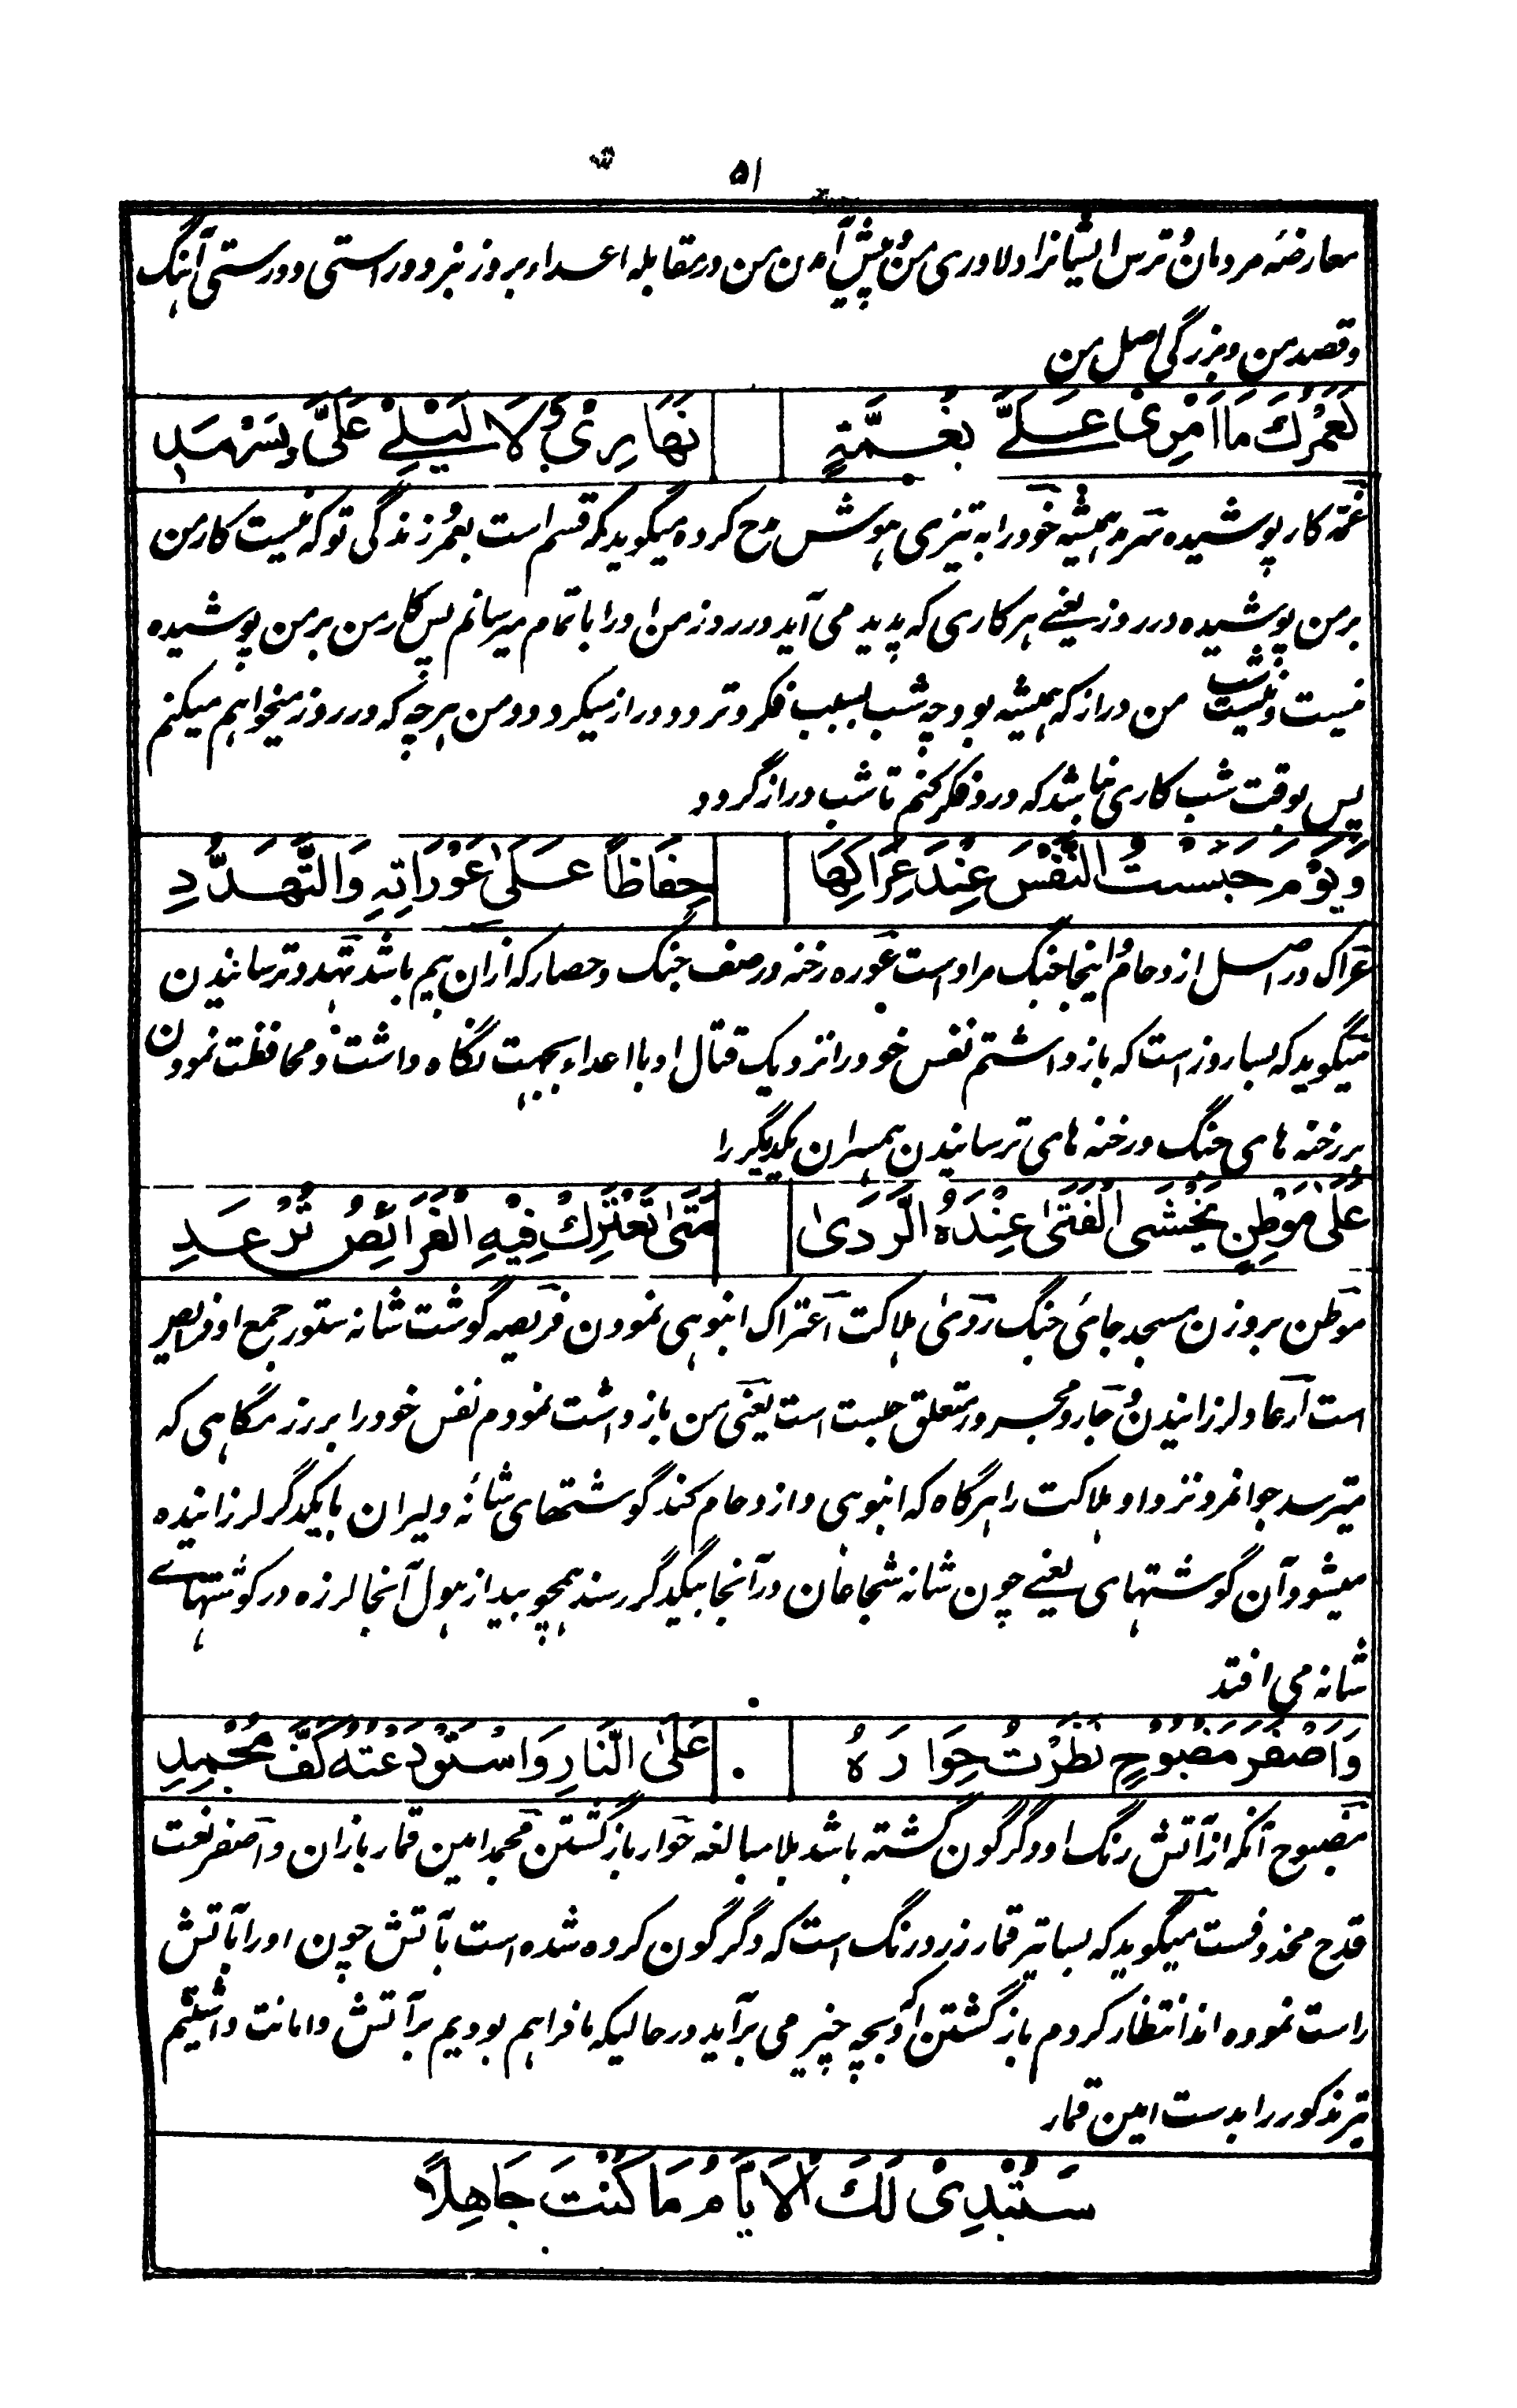 ۵۱
معارضهٔ مردمان و ترس ایشانرا و دلاوری من و پیش آمدن من در مقابله اعداء بروز نبرد و راستی و درستی آهنگ
و قصد من و بزرگی اصل من
لَعَمْرُكَ مَا اَمْرِیْ عَلَیَّ بِغُمَّةٍ نَهَارِیْ وَلَا لَیْلِیْ عَلَیَّ بِسَرْمَدِ
غمّه کار پوشیده سرمد همیشه خود را به تیزی هوش مدح کرده میگوید که قسم است بعمر زندگی تو که نیست کار من
بر من پوشیده در روز یعنے هر کاری که پدید می آید در روز من او را باتمام میرسانم پس کار من بر من پوشیده
نیست و نیست شب من دراز که همیشه بود چه شب بسبب فکر و تردد دراز میگردد و من هرچه که در روز میخواهم میکنم
پس بوقت شب کاری نباشد که درو فکر کنم تا شب دراز گردد
وَیَوْمَ حَبَسْتُ النَّفْسَ عِنْدَ عِرَاكِهَا حِفَاظًا عَلٰی عَوْرَاتِهِ وَالتَّهَدُّدِ
عراک در اصل ازدحام و اینجا جنگ مراد است عوره رخنه در صف جنگ و حصار که ازان بیم باشد تهدد ترسانیدن
میگوید که بسا روز است که باز داشتم نفس خود را نزدیک قتال او با اعداء بجهت نگاه داشتن و محافظت نمودن
بر رخنه های جنگ و رخنه های ترسانیدن همسران یکدیگر را
عَلٰی مَوْطِنٍ یَخْشَی الْفَتٰی عِنْدَهُ الرَّدٰی مَتٰی تَعْتَرِكْ فِیْهِ الْفَرَائِصُ تُرْعَدِ
موطن بر وزن مسجد جائی جنگ ردیٰ هلاکت اعتراک انبوهی نمودن فریصه گوشت شانه ستور جمع او فرائص
است ارعاد لرزانیدن و جار و مجرور متعلق حبست است یعنی من باز داشت نمودم نفس خود را بر رزمگاهی که
میترسد جوانمرد نزد او هلاکت را هرگاه که انبوهی و ازدحام کند گوشتهای شانهٔ دلیران با یکدگر لرزانیده
میشود آن گوشتهای یعنے چون شانه شجاعان در آنجا بیکدگر رسند همچو بید از هول آنجا لرزه در گوشتهاے
شانه می افتد
وَاَصْفَرَ مَضْبُوْحٍ نَظَرْتُ حِوَارَهُ عَلَی النَّارِ وَاسْتَوْدَعْتُهُ كَفَّ مُجْمِدِ
مضبوح آنکه از آتش رنگ او دگرگون گشته باشد بلا مبالغه حوار بازگشتن مجمد امین قمار بازان و اصفر نعت
قدح محذوفست میگوید که بسا تیر قمار زرد رنگ است که دگرگون کرده شده است بآتش چون او را بآتش
راست نموده اند انتظار کردم باز گشتن او که بچه چیز می برآید در حالیکه ما فراهم بودیم بر آتش و امانت داشتیم
تیر مذکور را بدست امین قمار
سَتُبْدِیْ لَكَ الْاَیَّامُ مَا كُنْتَ جَاهِلًا